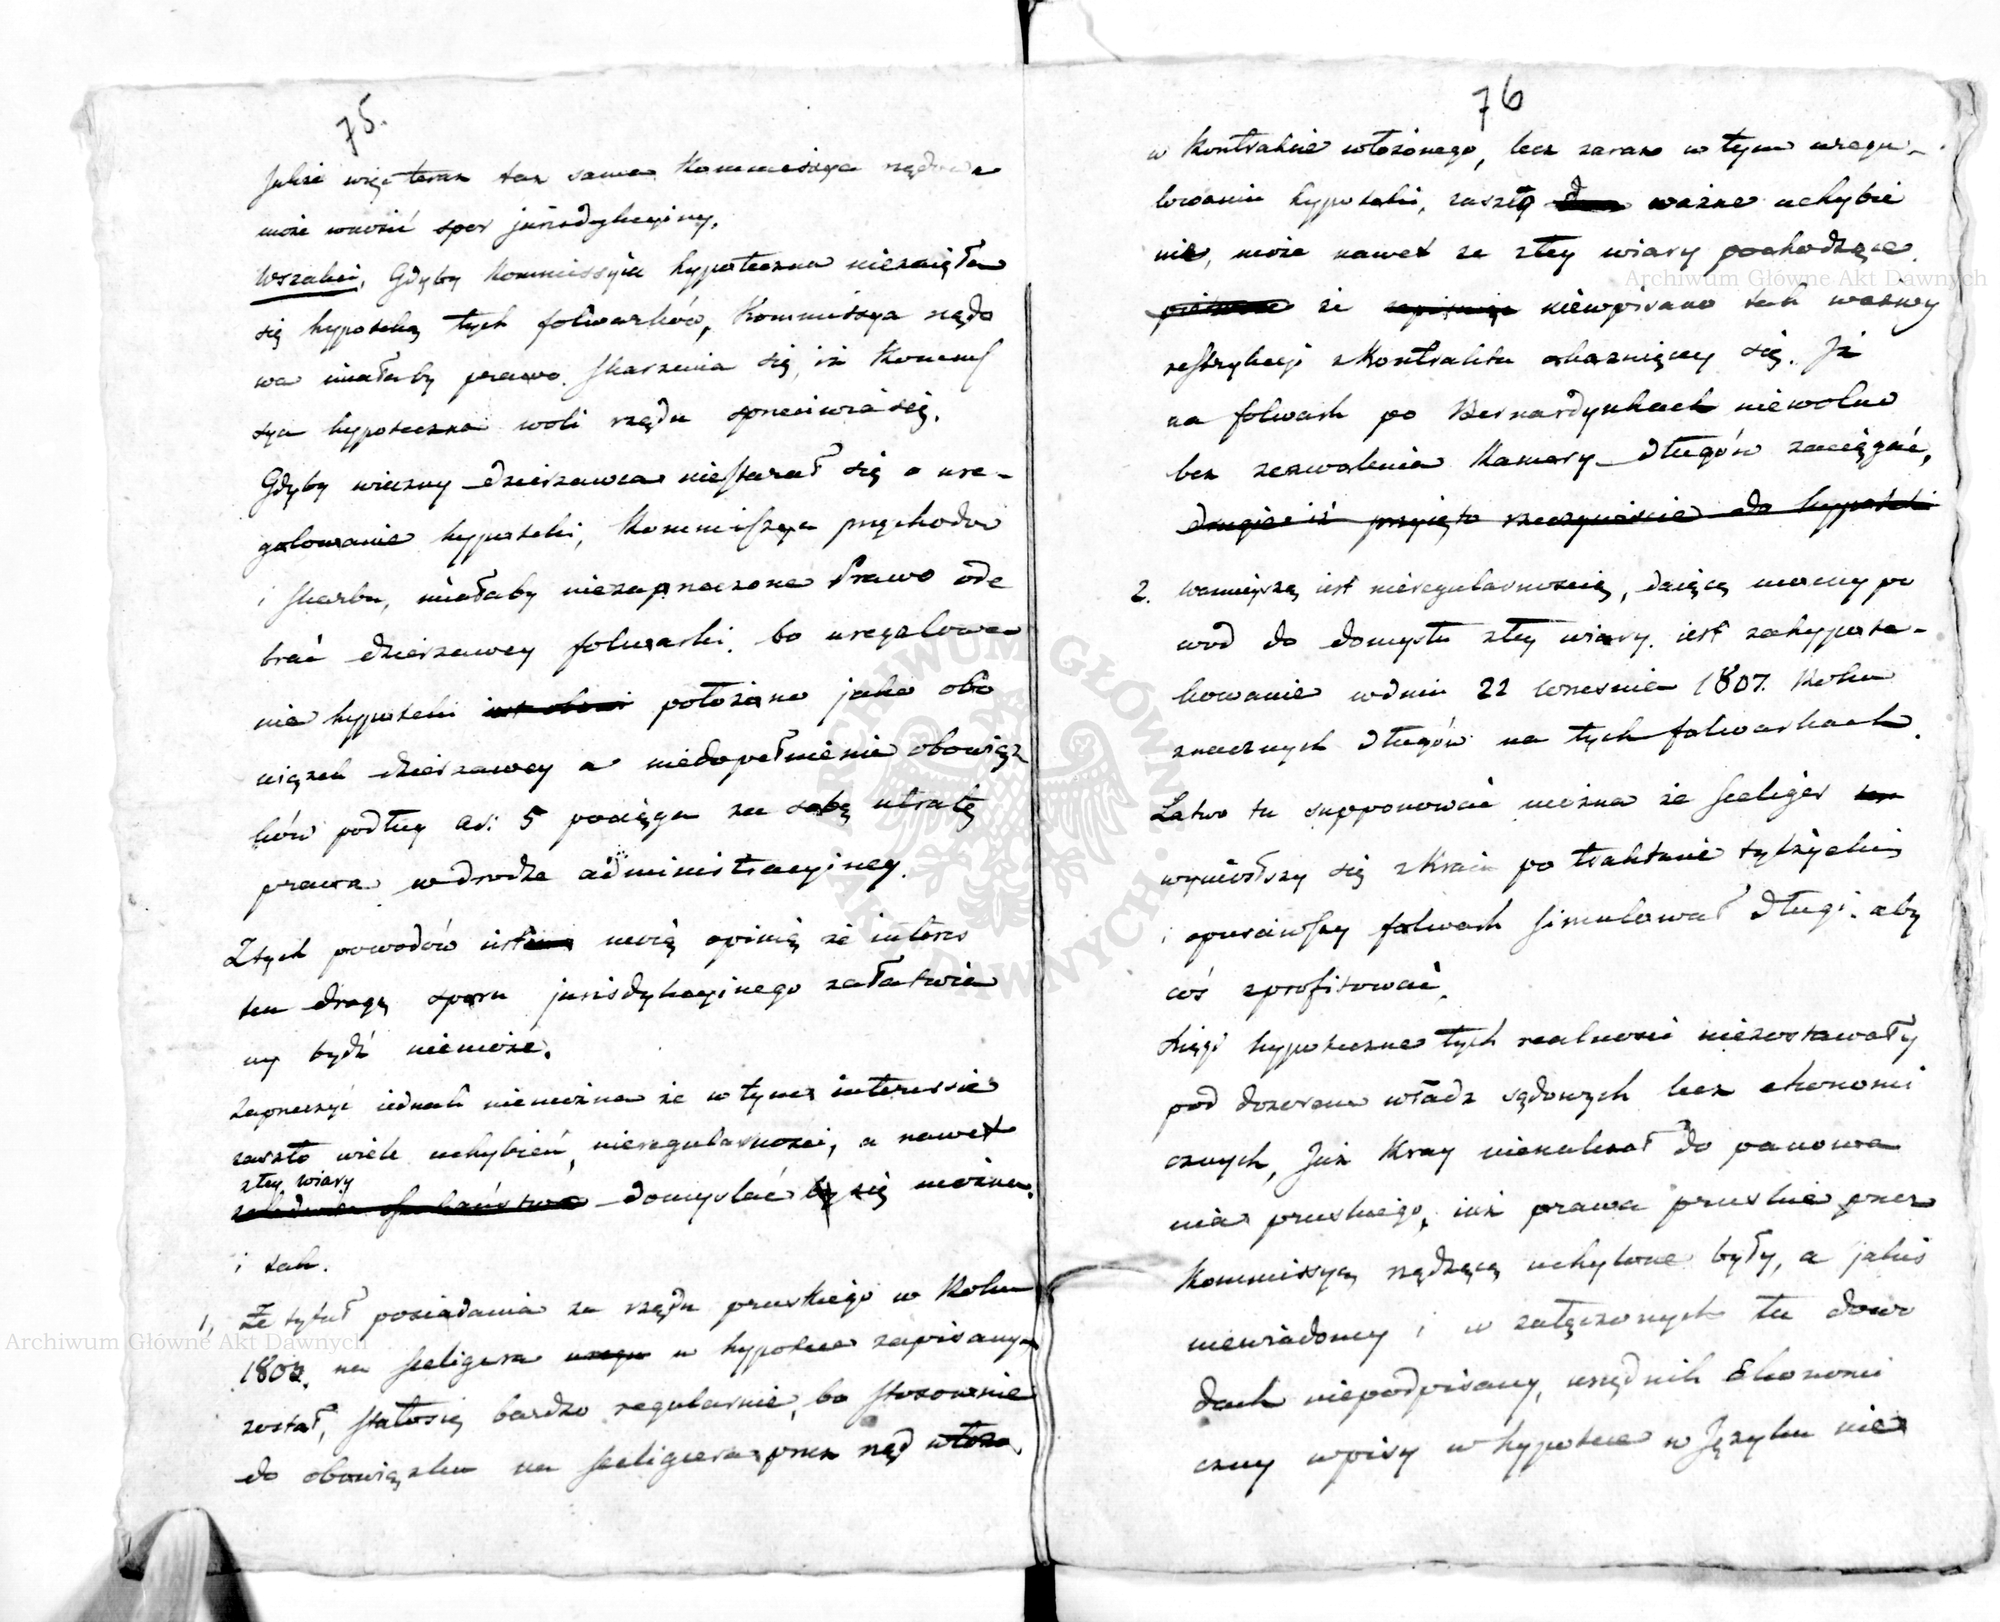 75.
Jakże więc teraz taż sama Kommissya rządowa
może wnosić spor jurisdykcyiny.
Wszakci, Gdyby Kommissyia hypoteczna niezaięła
się hypoteką tych folwarków, Kommissya rządo
wa miałaby prawo skarżenia się, iż Kommis
sya hypoteczna woli rządu sprzeciwia się.
Gdyby wieczny dzierżawca niestarał się o ure-
gulowanie hypoteki, Kommissya przychodow
i skarbu, miałaby niezaprzeczone Prawo ode
brać dzierżawcy folwarki, bo uregulowa
nie hypoteki położono jako obo
wiązek dzierżawcy a niedopełnienie obowiąz
ków podług ar: 5 pociąga za sobą utratę
prawa w drodze administracyiney.
Z tych powodów iestem moią opinią że interes
ten drogą sporu jurisdykcyinego załatwio
ny bydź niemoże.
Zaprzeczyć iednak niemożna że w tym interessie
zaszło wiele uchybień, nieregularności, a nawet
złey wiary
domyślać się można.
i tak.
1, Że tytuł posiadania za rządu pruskiego w Roku
1802. na Seeligera w hypotece zapisanym
został, stałosię bardzo regularnie, bo stosownie
do obowiązku na Seeligera przez rząd włożo
76
w Kontrakcie włożonego, lecz zaraz w tym uregu-
lowaniu hypoteki, zaszło ważne uchybie
nie, może nawet ze złey wiary pochodzące
że niewpisano tak ważney
restrykcyi z Kontraktu okazuiącey się. Iż
na folwark po Bernardynkach niewolno
bez zezwolenia Kamery długów zaciągać,
drugie iż przyięto rzeczywiście do hypoteki
2. Ważnieyszą iest nieregularnością, daiącą mocny po
wod do domysłu złey wiary. iest zahypote-
kowanie w dniu 22 Września 1807. Roku
znacznych długów na tych folwarkach.
Łatwo tu supponować można że Seeliger
wyniosłszy się z Kraiu po traktacie tylżyckim
i opuściwszy folwark simulował długi, aby
coś zprofitować.
Księgi hypoteczne tych realności niezostawały
pod dozorem władz sądowych lecz ekonomi
cznych, Już Kray nienależał do panowa
nia pruskiego, iuż prawa pruskie przez
Kommissyą rządzącą uchylone były, a jakiś
niewiadomy i w załączonych tu dowo
dach niepodpisany, urzędnik Ekonomi
czny wpisy w hypotece w Języku nie